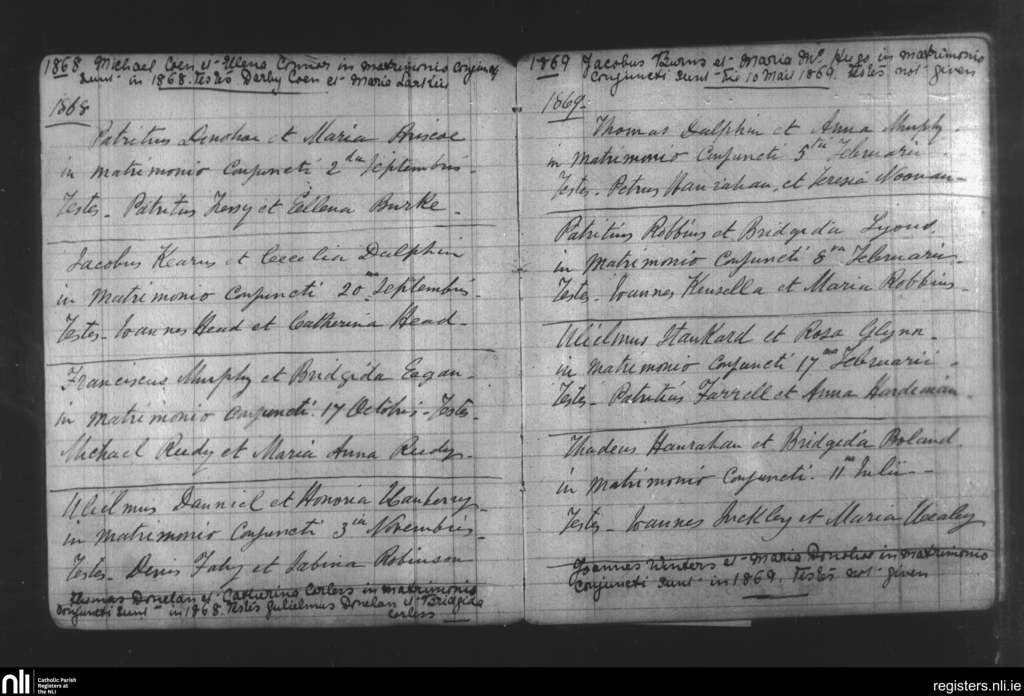 1868 Michael Coen et Elena Connor in matrimonio conjuncti
sunt in 1868. Testes Derby Coen et Maria Larkin
1868
Patritius Donohoe et Maria Briscoe
in matrimonio Conjuncti 2 Septembris
Testes - Patritius et Ellena Burke -
Jacobus Kearns et Cecelia Dalphin
in Matrimonio Conjuncti 20 Septembris -
Testes - Ioannes Head et Catherina Head -
Franciscus Murphy et Bridgida Eagan -
in Matrimonio Conjuncti. 17 Octobris - Testes -
Michael Reedy et Maria Anna Reedy -
Ulielmus Danniel et Honoria
in Matrimonio Conjuncti 3 Novembris -
Testes - Denis Fahy et Sabina Robinson
Thomas Donelan et Catherina Corless in matrimonio
conjuncti sunt in 1868. Testes Gulielmus Donelan et Bridgida
Corless
1869 Jacobus Burns et Maria Mc Hugo in matrimonio
conjuncti sunt die 10 Maii 1869. Testes not given
1869.
Thomas Dalphin et Anna Murphy
in Matrimonio Conjuncti 5 Februarii
Testes - Petrus Hanrahan, et Teresia Noonan -
Patritius Robbins et Bridgida Lyons,
in Matrimonio Conjuncti 8 Februarii -
Testes - Ioannes Kinsella et Maria Robbins -
Ulielmus Stankard et Rosa Glynn -
in Matrimonio Conjuncti 17 Februarii -
Testes - Patritius Farrell et Anna Hardeman -
Thadeus Hanrahan et Bridgida Boland
in Matrimonio Conjuncti. 11 Iulii -
Testes - Ioannes et Maria
Joannes Winters et Maria Donohoe in matrimonio
conjuncti sunt in 1869. Testes not given
nli Catholic Parish
Registers at
the NLI
registers.nli.ie